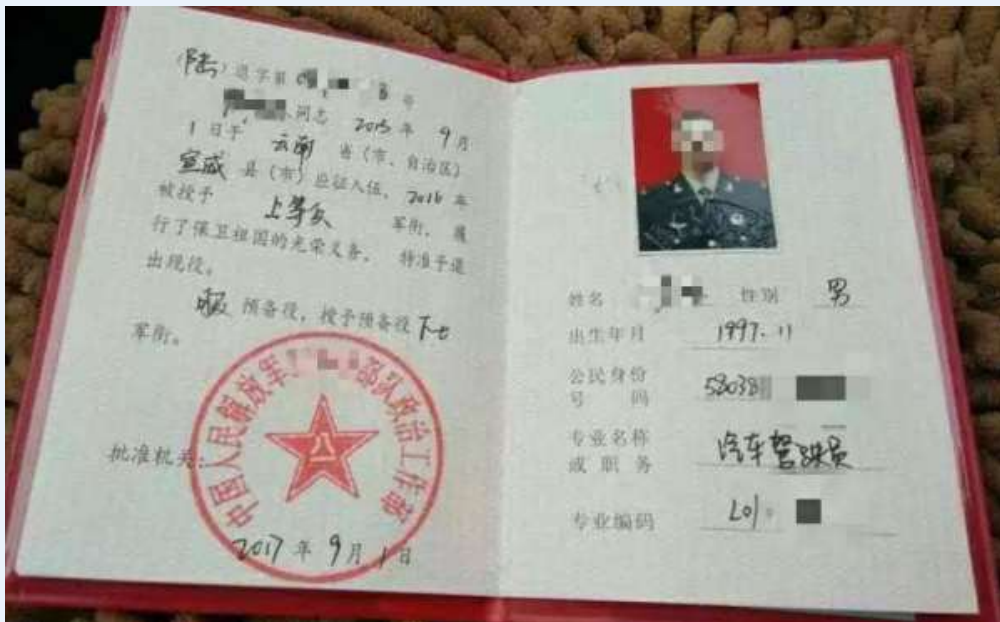 (陆)退字第 号
同志 2015年9月
1日于 云南 省(市、自治区)
宣威 县(市)应征入伍,2016年
被授予 上等兵 军衔,履
行了保卫祖国的光荣义务,特准予退
出现役。
服 预备役,授予预备役下士
军衔。
批准机关:
中国人民解放军 部队政治工作部
2017年9月1日
姓名 性别 男
出生年月 1997.11
公民身份 58038
号 码
专业名称 汽车驾驶员
或职务
专业编码 L01